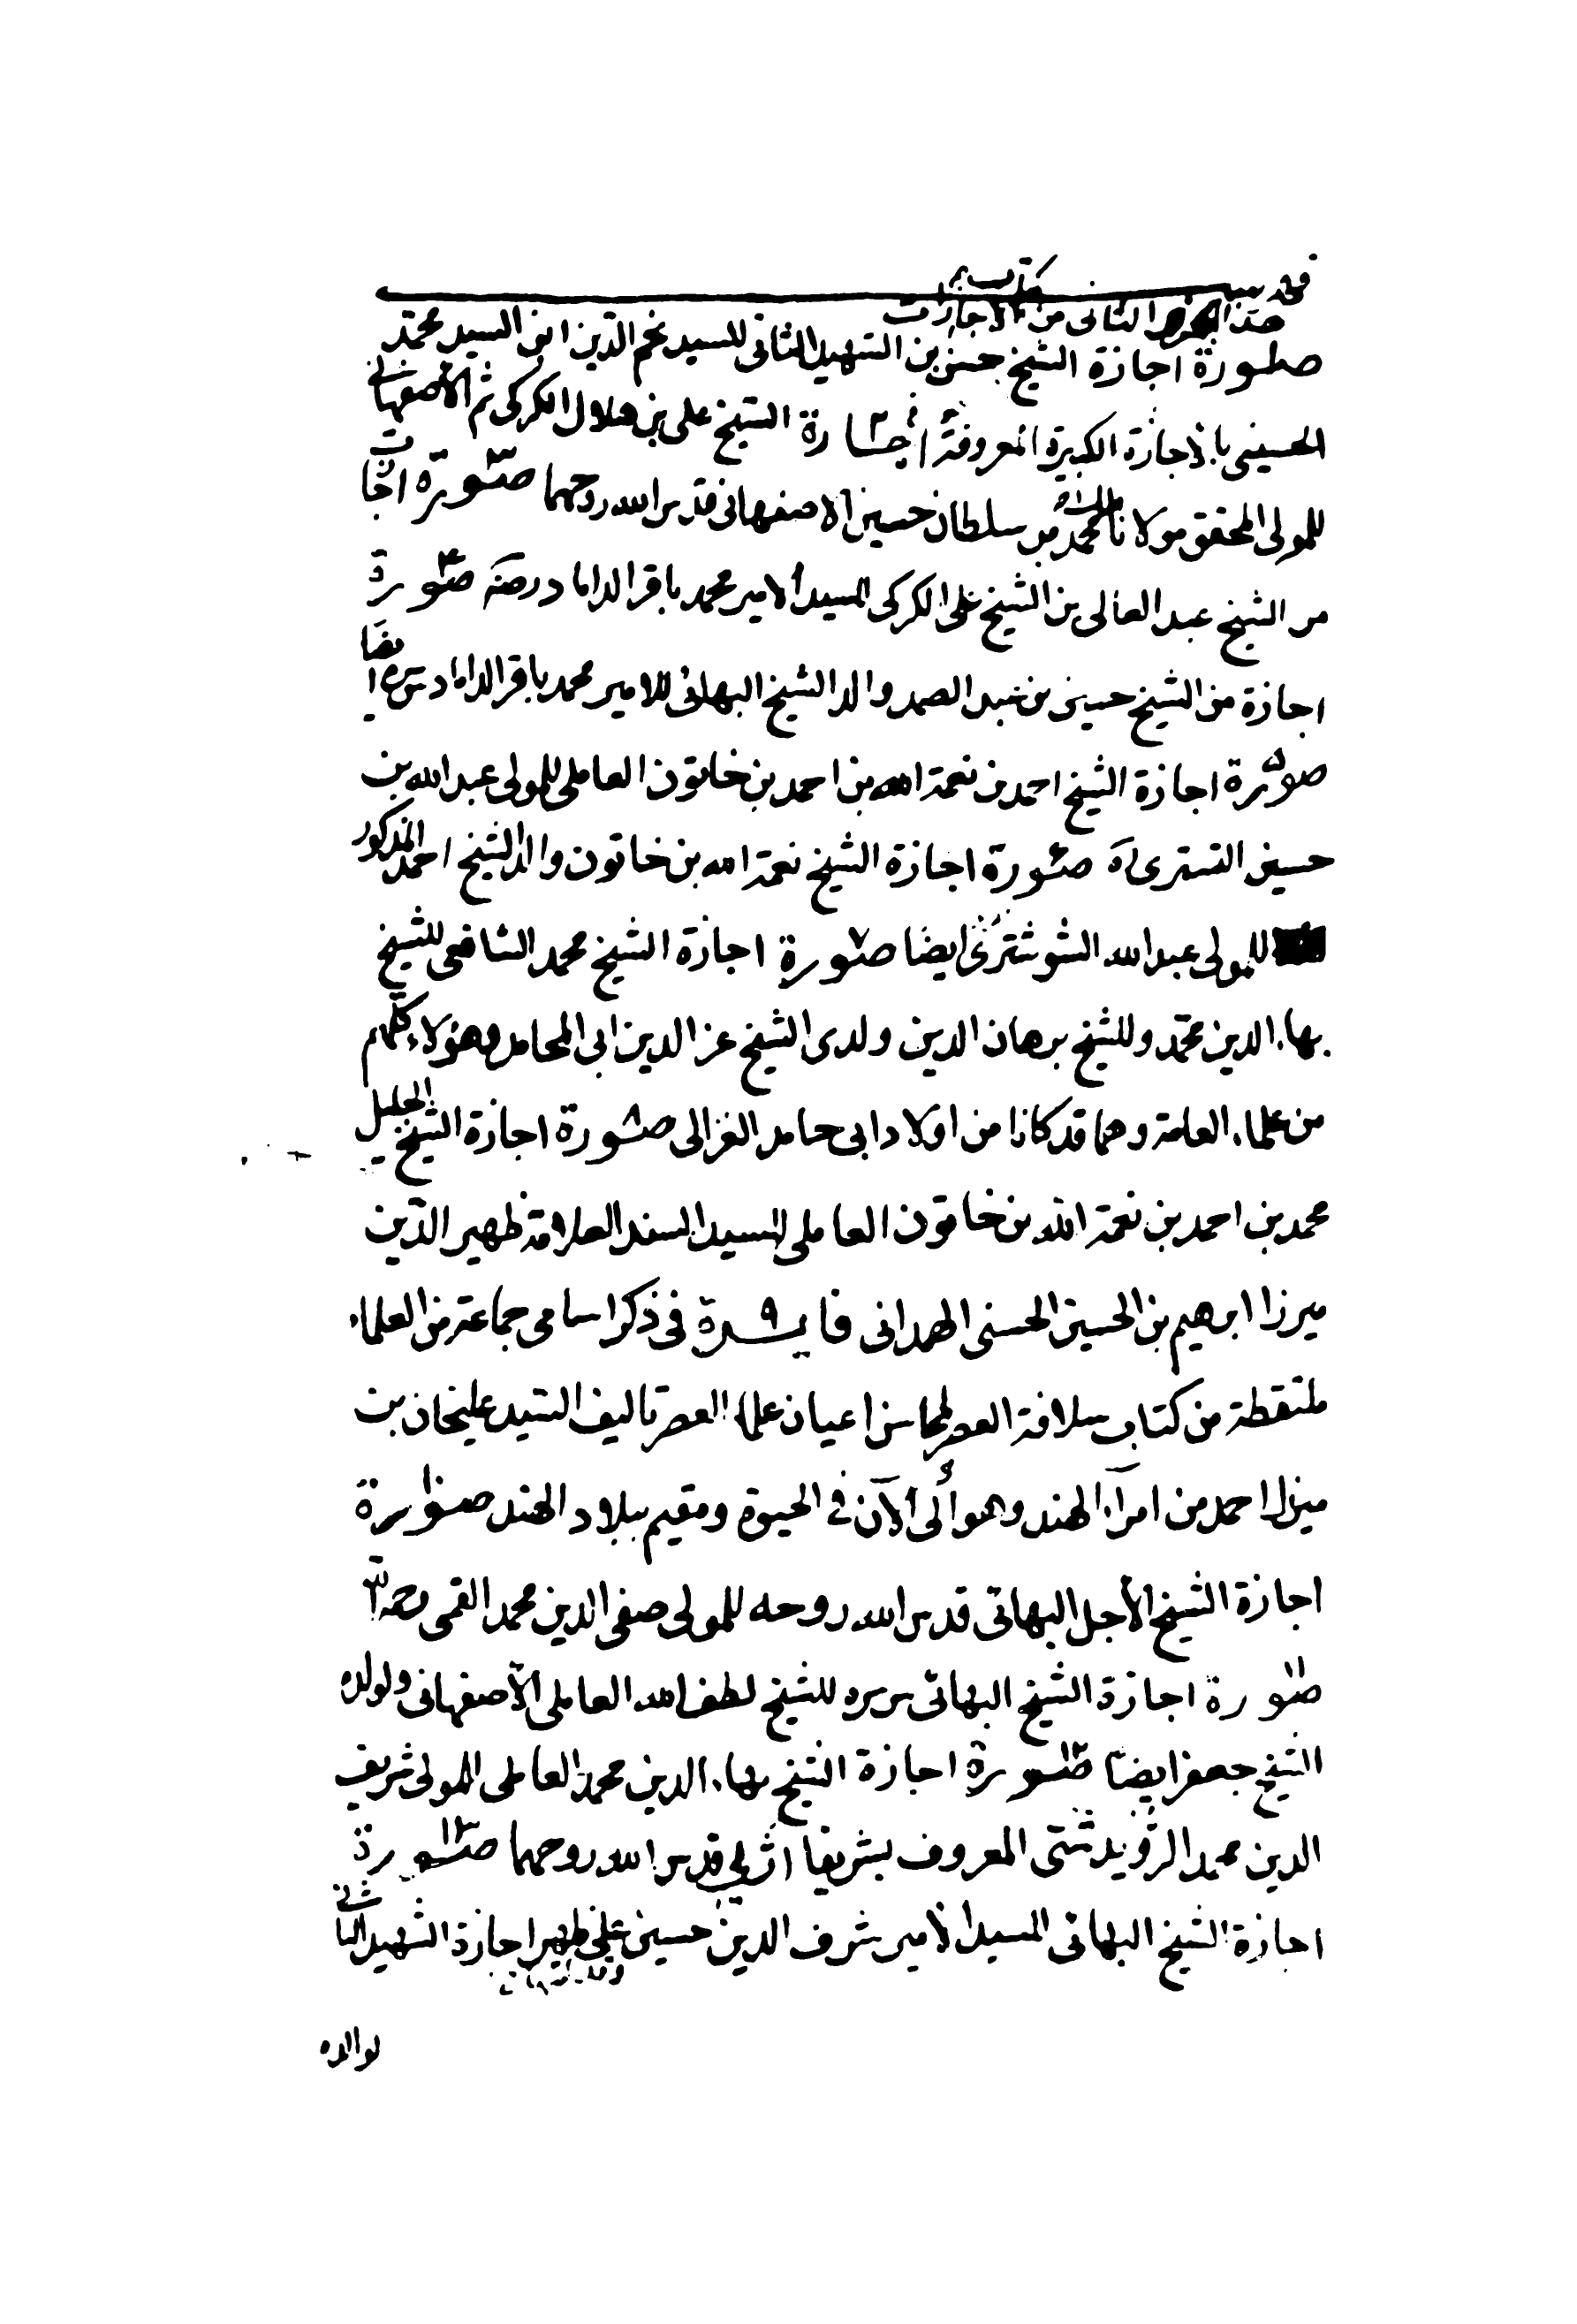 هذا الجزء الثاني من كتاب الاجازات
صورة اجازة الشيخ حسن بن الشهيد الثاني للسيد نجم الدين ابن السيد محمد
الحسيني بالاجازة الكبيرة المعروفة اجازة الشيخ علي بن هلال الكركي ثم الاصفهاني
للمولى المحقق مولانا محمد بن سلطان حسين الاصفهاني قدس الله روحهما صورة اجازة
من الشيخ عبد العالي بن الشيخ علي الكركي للسيد الامير محمد باقر الداماد صورة
اجازة من الشيخ حسين بن عبد الصمد والد الشيخ البهائي للامير محمد باقر الداماد ايضا
صورة اجازة الشيخ احمد بن نعمة الله بن احمد بن خاتون العاملي للمولى عبد الله بن
حسين التستري صورة اجازة الشيخ نعمة الله بن خاتون والد الشيخ احمد المذكور
للمولى عبد الله الشوشتري ايضا صورة اجازة الشيخ محمد الشافعي للشيخ
بهاء الدين محمد وللشيخ برهان الدين ولدى الشيخ عز الدين ابى المحامد وهؤلاء كلهم
من علماء العامة وهما قد كانا من اولاد ابى حامد الغزالى صورة اجازة الشيخ الجليل
محمد بن احمد بن نعمة الله بن خاتون العاملى للسيد السند العلامة ظهير الدين
ميرزا ابرهيم بن الحسين الحسنى الهمدانى فائدة ٩ فى ذكر اسامى جماعة من العلماء
ملتقطة من كتاب سلافة العصر لمحاسن اعيان علماء العصر تاليف السيد عليخان بن
ميرزا احمد من امراء الهند وهو الى الآن فى الحيوة ومقيم ببلاد الهند صورة ١٠
اجازة الشيخ الأجل البهائى قدس الله روحه للمولى صفى الدين محمد القمى رحمه الله
صورة ١١ اجازة الشيخ البهائى سره للشيخ لطف الله العاملى الأصفهانى ولولده
الشيخ جعفر ايضا صورة ١٢ اجازة الشيخ بهاء الدين محمد العاملى للمولى شريف
الدين محمد الرويدشتى المعروف بشريفا قدس الله روحهما صورة ١٣
اجازة الشيخ البهائى للسيد الامير شرف الدين حسين اجازة الشهيد الثانى
لوالده